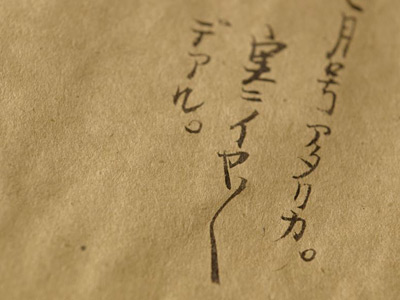 月号アタリカ。
実ニイヤ〳〵
デアル。